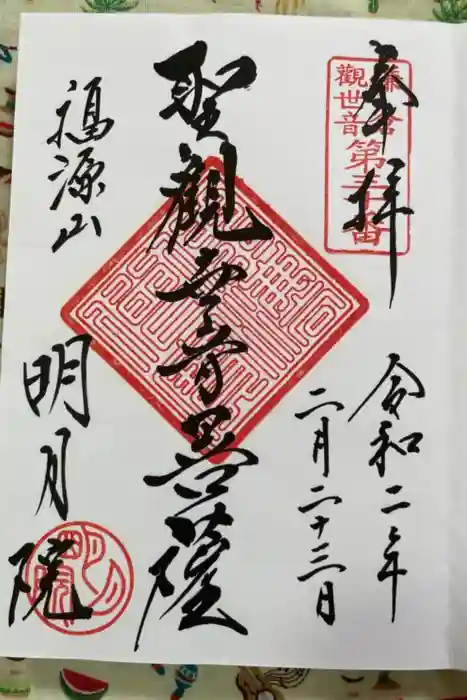 奉拝
鎌倉
觀世音
第三十番
令和二年
二月二十三日
聖觀世音菩薩
福源山
明月院